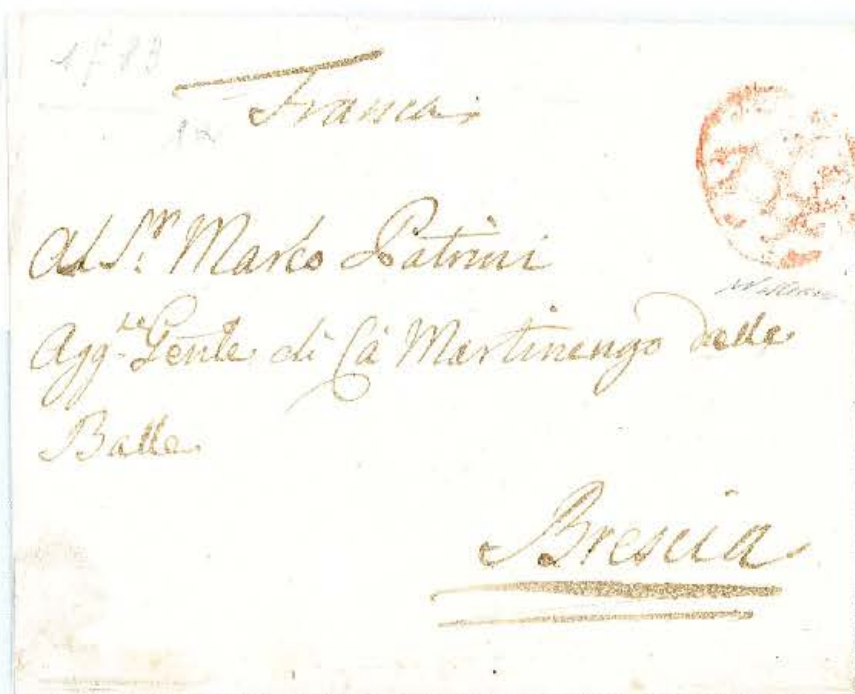 1783
Franca
Al S.r Marco Patrini
Agg.te Gente di Cà Martinengo dalle
Balle
Brescia